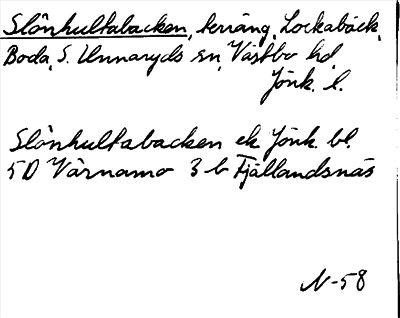 Slönhultabacken, terräng, Lockabäck,
Boda, S. Unnaryds sn, Västbo hd
Jönk. l.
Slönhultabacken ek Jönk bl.
5D Värnamo 3 b Fjällandsnäs
N-58